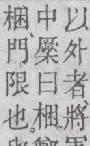 以外者、將軍
中橜曰梱、
梱門限也。